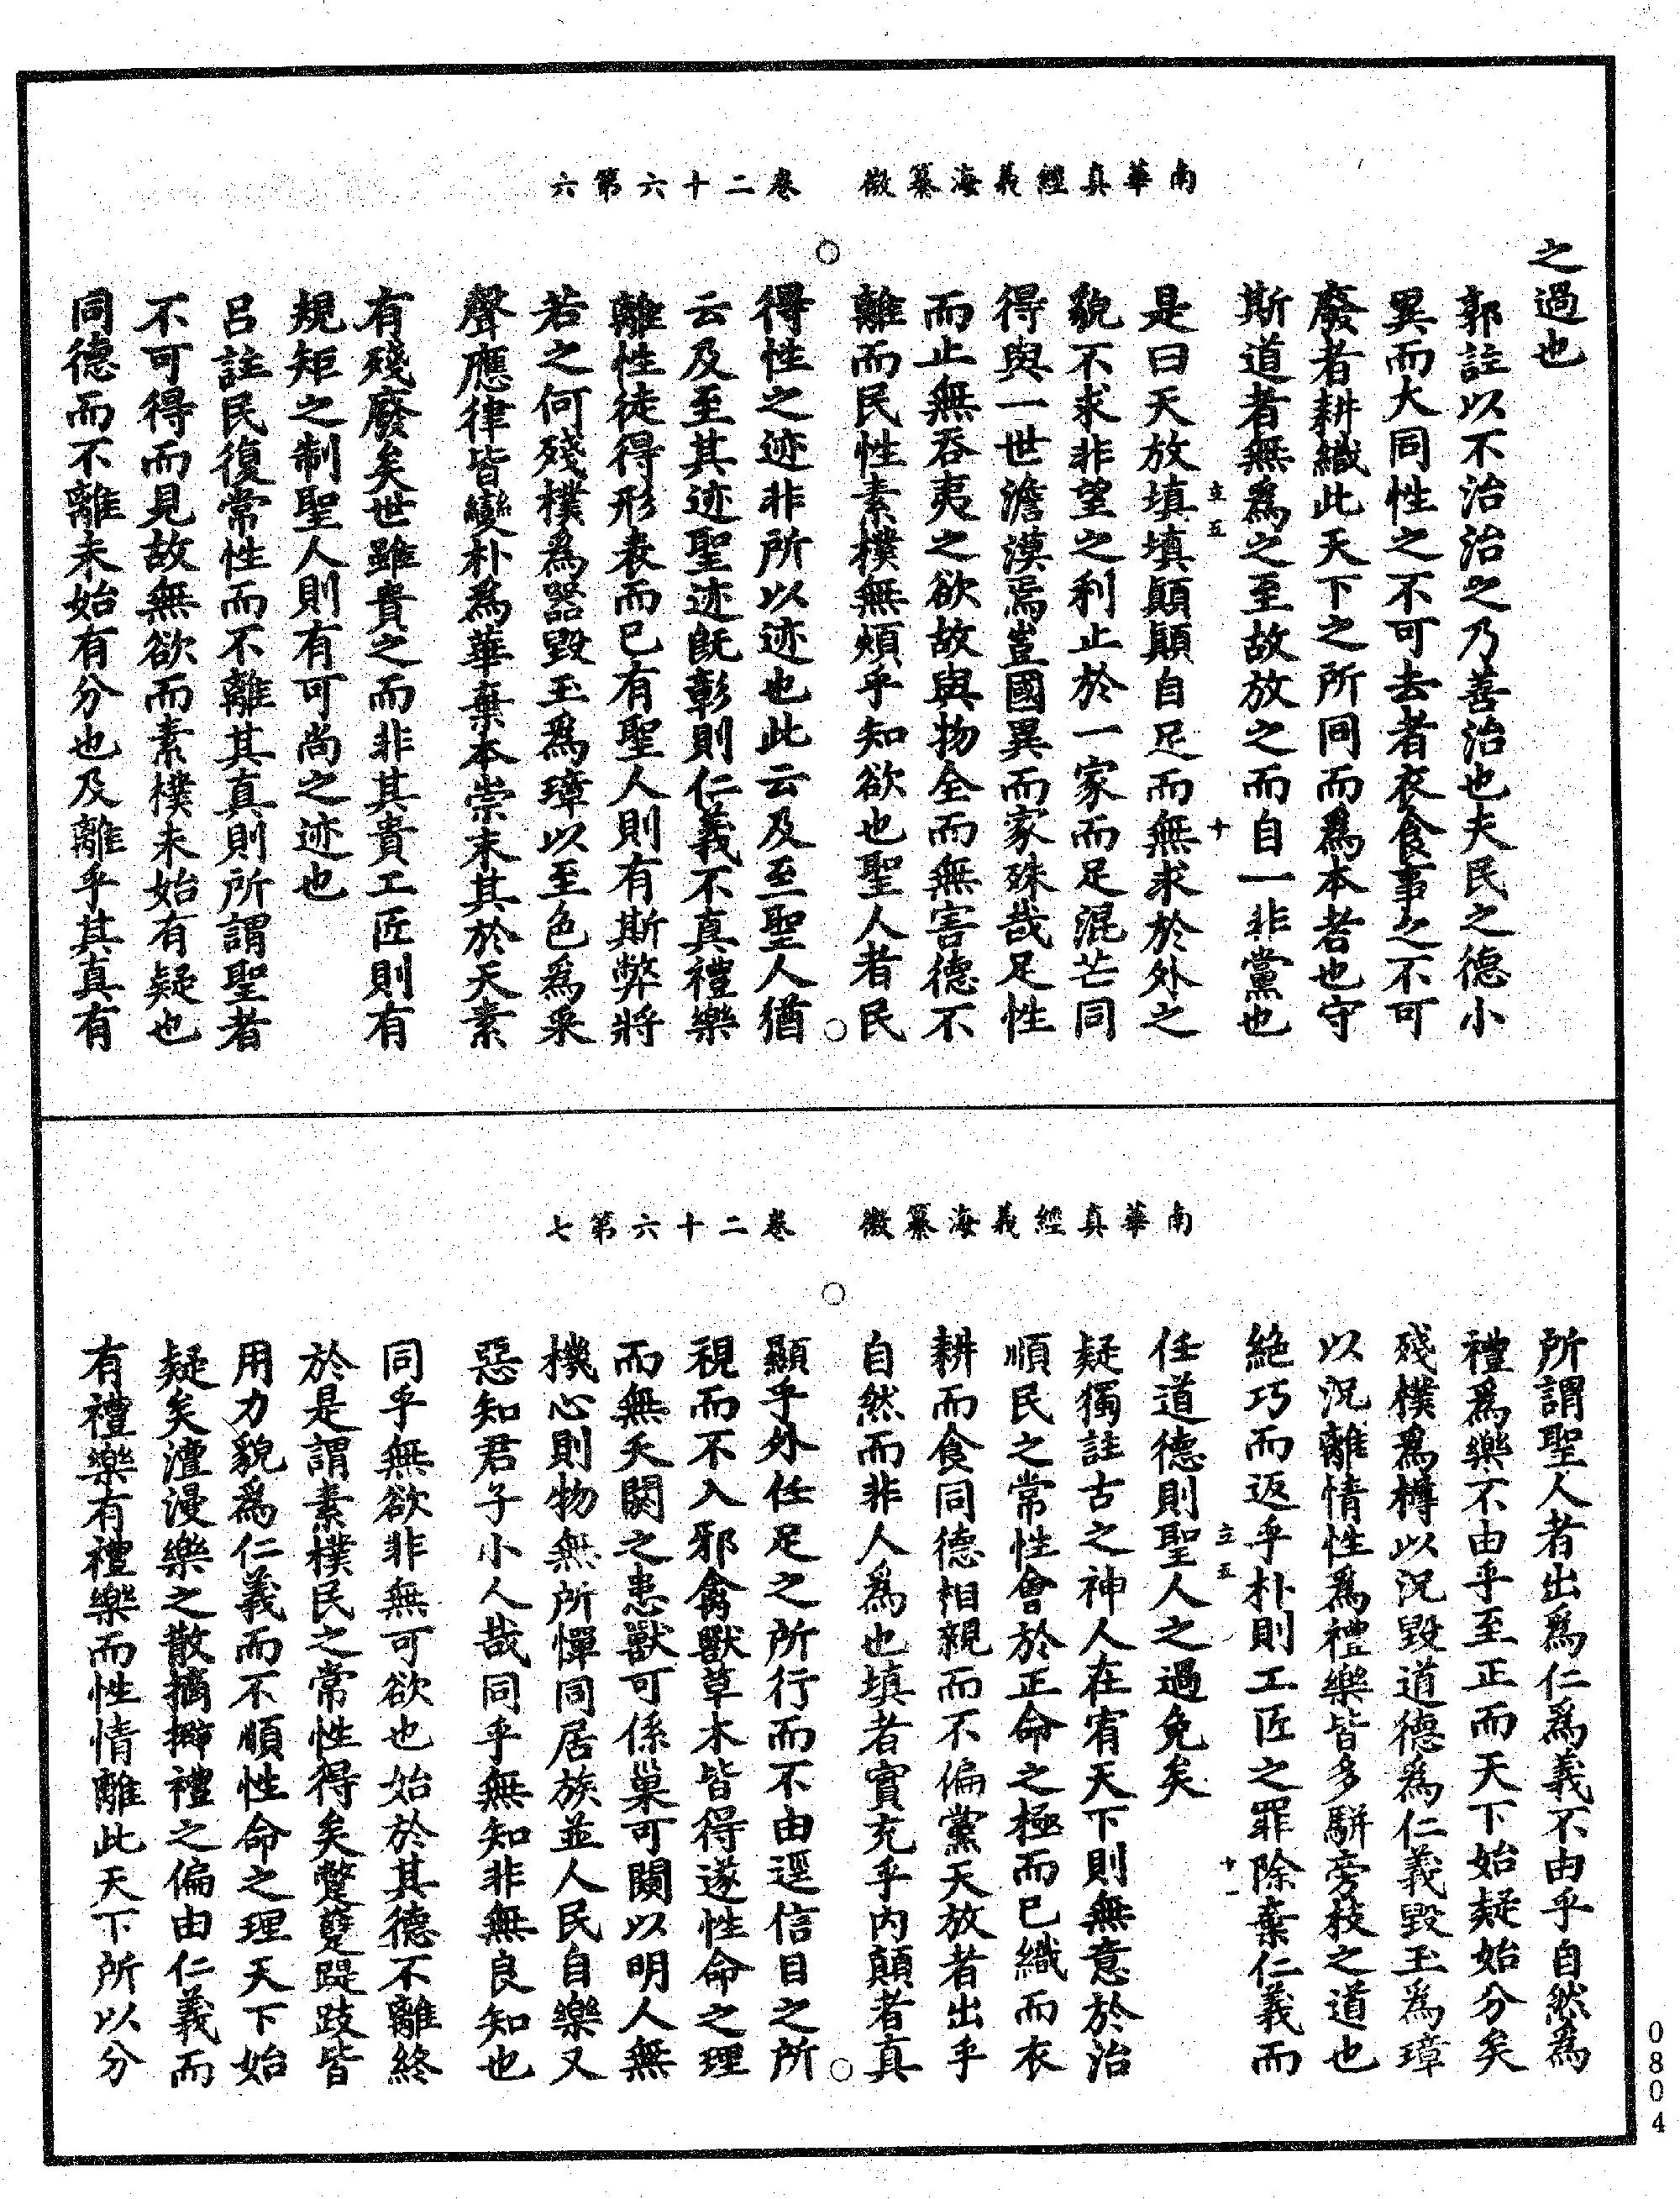 南華真經義海纂微　卷二十六第六
之過也
郭註以不治治之乃善治也夫民之德小
異而大同性之不可去者衣食事之不可
廢者耕織此天下之所同而爲本者也守
斯道者無爲之至故放之而自一非黨也
立五　十
是曰天放填填顛顛自足而無求於外之
貌不求非望之利止於一家而足混芒同
得與一世澹漠焉豈國異而家殊哉足性
而止無吞夷之欲故與物全而無害德不
離而民性素樸無煩乎知欲也聖人者民
得性之迹非所以迹也此云及至聖人猶
云及至其迹聖迹既彰則仁義不真禮樂
離性徒得形表而已有聖人則有斯弊將
若之何殘樸爲器毀玉爲璋以至色爲采
聲應律皆變朴爲華棄本崇末其於天素
有殘廢矣世雖貴之而非其貴工匠則有
規矩之制聖人則有可尚之迹也
呂註民復常性而不離其真則所謂聖者
不可得而見故無欲而素樸未始有疑也
同德而不離未始有分也及離乎其真有
南華真經義海纂微　卷二十六第七
所謂聖人者出爲仁爲義不由乎自然爲
禮爲樂不由乎至正而天下始疑始分矣
殘樸爲樽以況毀道德爲仁義毀玉爲璋
以況離情性爲禮樂皆多駢旁枝之道也
絶巧而返乎朴則工匠之罪除棄仁義而
立五　十一
任道德則聖人之過免矣
疑獨註古之神人在宥天下則無意於治
順民之常性會於正命之極而已織而衣
耕而食同德相親而不偏黨天放者出乎
自然而非人爲也填者實充乎內顛者真
顯乎外任足之所行而不由逕信目之所
視而不入邪禽獸草木皆得遂性命之理
而無夭閼之患獸可係巢可闚以明人無
機心則物無所憚同居族並人民自樂又
惡知君子小人哉同乎無知非無良知也
同乎無欲非無可欲也始於其德不離終
於是謂素樸民之常性得矣蹩躠踶跂皆
用力貌爲仁義而不順性命之理天下始
疑矣澶漫樂之散摘擗禮之偏由仁義而
有禮樂有禮樂而性情離此天下所以分
0804